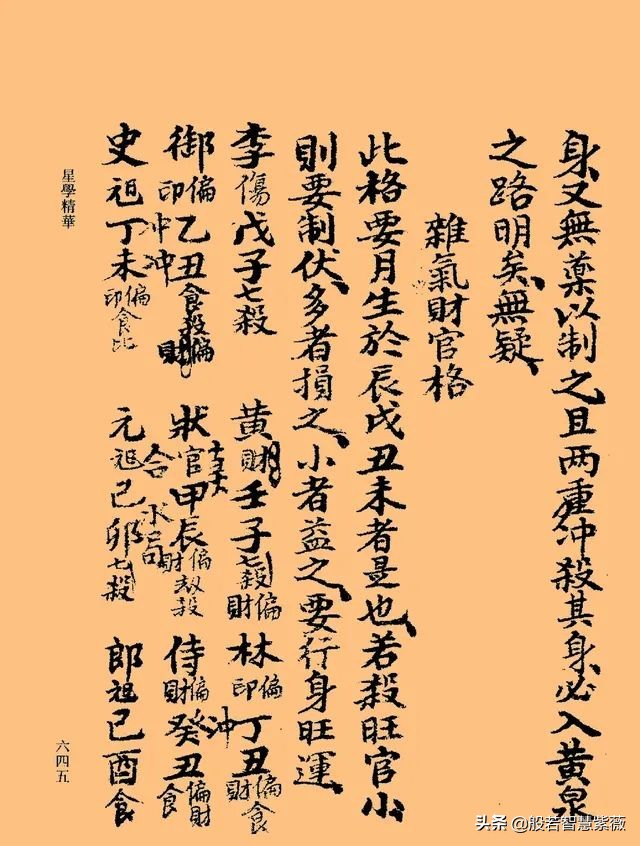 身又無藥以制之且两重冲殺其身必入黃泉
之路明矣無疑
雜氣財官格
此格要月生於辰戌丑未者是也若殺旺官小
則要制伏多者損之小者益之要行身旺運
李傷戊子七殺
黃財壬子七殺偏財
林偏印丁丑偏財食
御偏印乙丑食殺偏財
狀官甲辰偏財劫殺
侍偏財癸丑偏財食
冲
冲
合
冲
史祖丁未偏印食比
元祖己卯七殺
郎祖己酉食
星學精華
六四五
头条 @般若智慧紫薇